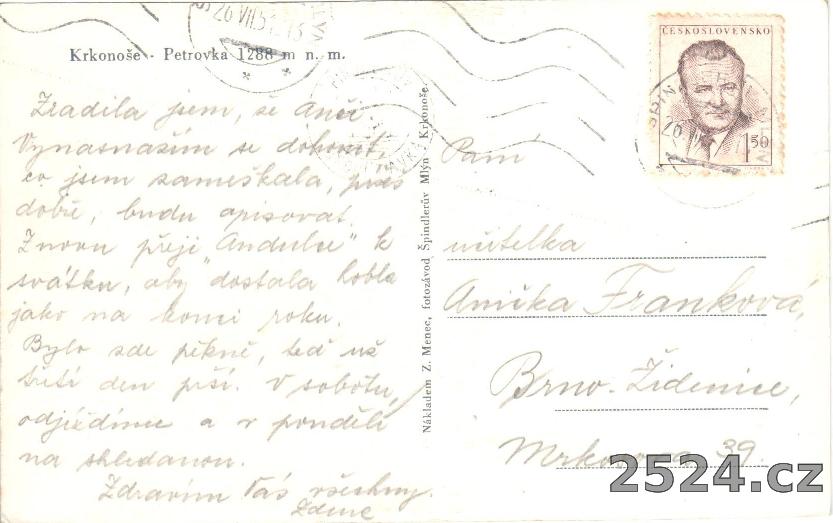 Krkonoše - Petrovka 1288 m n. m.
Zradila jsem, že Anči.
Vynasnažím se dohonit
co jsem zameškala,
dobře, budu opisovat.
Znovu přeji "Andulce" k
svátku, aby dostala kobla
jako na konci roku.
Bylo zde pěkně, teď už
třetí den prší. V sobotu,
odjíždíme a v pondělí
na shledanou.
Zdravím Vás všechny.
Zdene
Nákladem Z. Menec, fotozávod Špindlerův Mlýn - Krkonoše.
ČESKOSLOVENSKO
1.50
26 VII.51-13
Paní
učitelka
Anička Franková,
Brno-Židenice,
39.
2524.cz